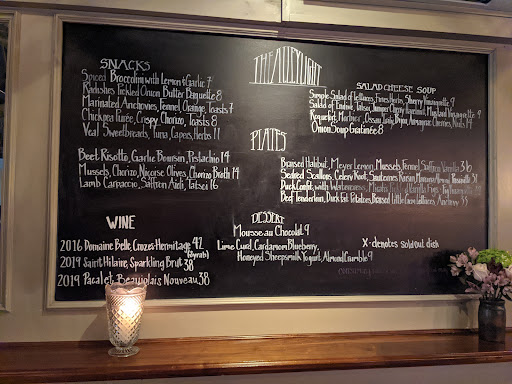 THE ALLEYLIGHT
SNACKS
Spiced Broccolini with Lemon & Garlic 7
Radishes Pickled Onion Butter Baguette 8
Marinated Anchovies, Fennel, Orange, Toasts 7
Chickpea Purée, Crispy Chorizo, Toasts 8
Veal Sweetbreads, Tuna, Capers, Herbs 11
Beet Risotto, Garlic Boursin, Pistachio 14
Mussels, Chorizo, Nicoise Olives, Chorizo Broth 14
Lamb Carpaccio, Saffron Aioli, Tatsoi 16
WINE
2016 Domaine Belle, Crozes-Hermitage 42
(Syrah)
2019 Saint Hilaire, Sparkling Brut 38
2019 Pacalet Beaujolais Nouveau 38
SALAD CHEESE SOUP
Simple Salad of Lettuces, Fines Herbs, Sherry Vinaigrette 9
Salad of Endive, Tatsoi, Juniper Cherry Hazelnut, Mustard Vinaigrette 9
Roquefort, Morbier, Nuts 14
Onion Soup Gratinée 8
PLATES
Braised Halibut, Meyer Lemon, Mussels, Fennel, Saffron Vanilla 36
Seared Scallops, Celery Root, Sauternes Raisin,
Duck Confit, with Watercress,
Beef Tenderloin, Duck Fat Potatoes, Braised Little Gem Lettuces,
DESSERT
Mousse au Chocolat 9
Lime Curd, Cardamom Blueberry,
Honeyed Sheepsmilk Yogurt, Almond Crumble 9
X - denotes sold out dish